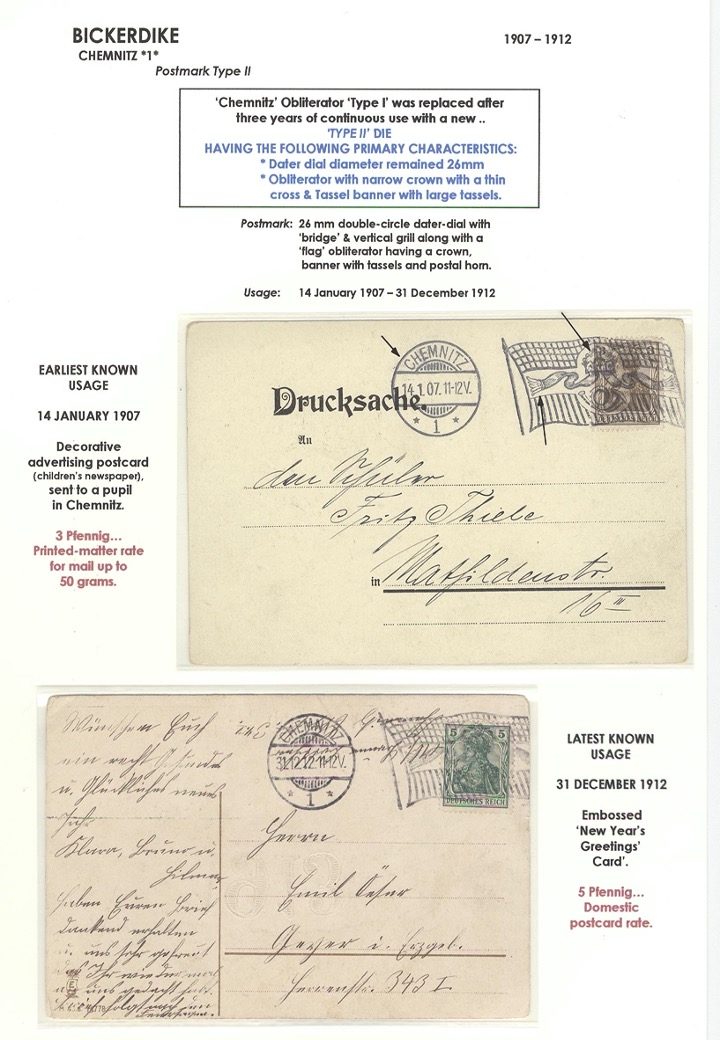 BICKERDIKE
1907 – 1912
CHEMNITZ *1*
Postmark Type II
'Chemnitz' Obliterator 'Type I' was replaced after
three years of continuous use with a new ..
'TYPE II' DIE
HAVING THE FOLLOWING PRIMARY CHARACTERISTICS:
* Dater dial diameter remained 26mm
* Obliterator with narrow crown with a thin
cross & Tassel banner with large tassels.
Postmark: 26 mm double-circle dater-dial with
'bridge' & vertical grill along with a
'flag' obliterator having a crown,
banner with tassels and postal horn.
Usage: 14 January 1907 – 31 December 1912
EARLIEST KNOWN
USAGE
14 JANUARY 1907
Decorative
advertising postcard
(children's newspaper),
sent to a pupil
in Chemnitz.
3 Pfennig...
Printed-matter rate
for mail up to
50 grams.
CHEMNITZ
14.1.07.11-12V.
* 1 *
Drucksache.
An
den Schüler
Fritz Thiele
in Mathildenstr.
16 III
CHEMNITZ
31.12.12.11-12V.
* 1 *
5 5
DEUTSCHES REICH
Wünschen Euch
ein recht gesundes
u. Glückliches neues
Jahr
Klara, Bruno u.
Hilmar
haben Euren Brief
dankend erhalten
u. uns sehr gefreut
das Ihr wieder mal
an uns gedacht habt.
Herrn
Emil
Geyer i. Erzgeb.
Herrenstr. 343 I.
LATEST KNOWN
USAGE
31 DECEMBER 1912
Embossed
'New Year's
Greetings'
Card'.
5 Pfennig...
Domestic
postcard rate.